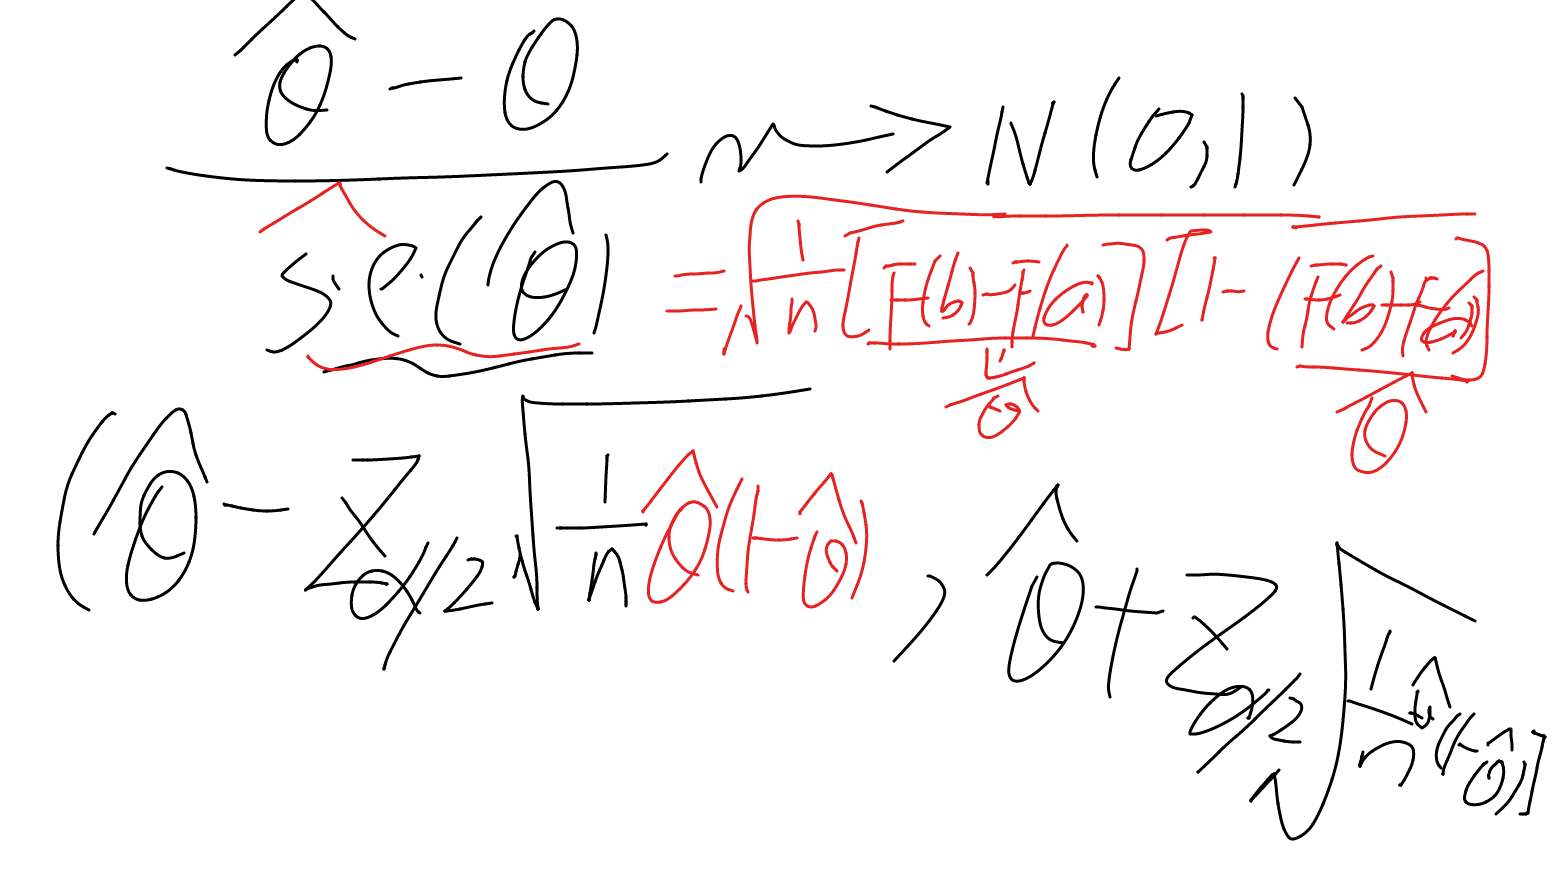 θ̂ - θ ⇝ N(0,1)
ŝ.e.(θ̂) = √ 1/n [F(b)-F(a)] [1-(F(b)-F(a))]
θ̂ θ̂
(θ̂ - Z α/2 √ 1/n θ̂(1-θ̂) , θ̂ + Z α/2 √ 1/n θ̂(1-θ̂)]